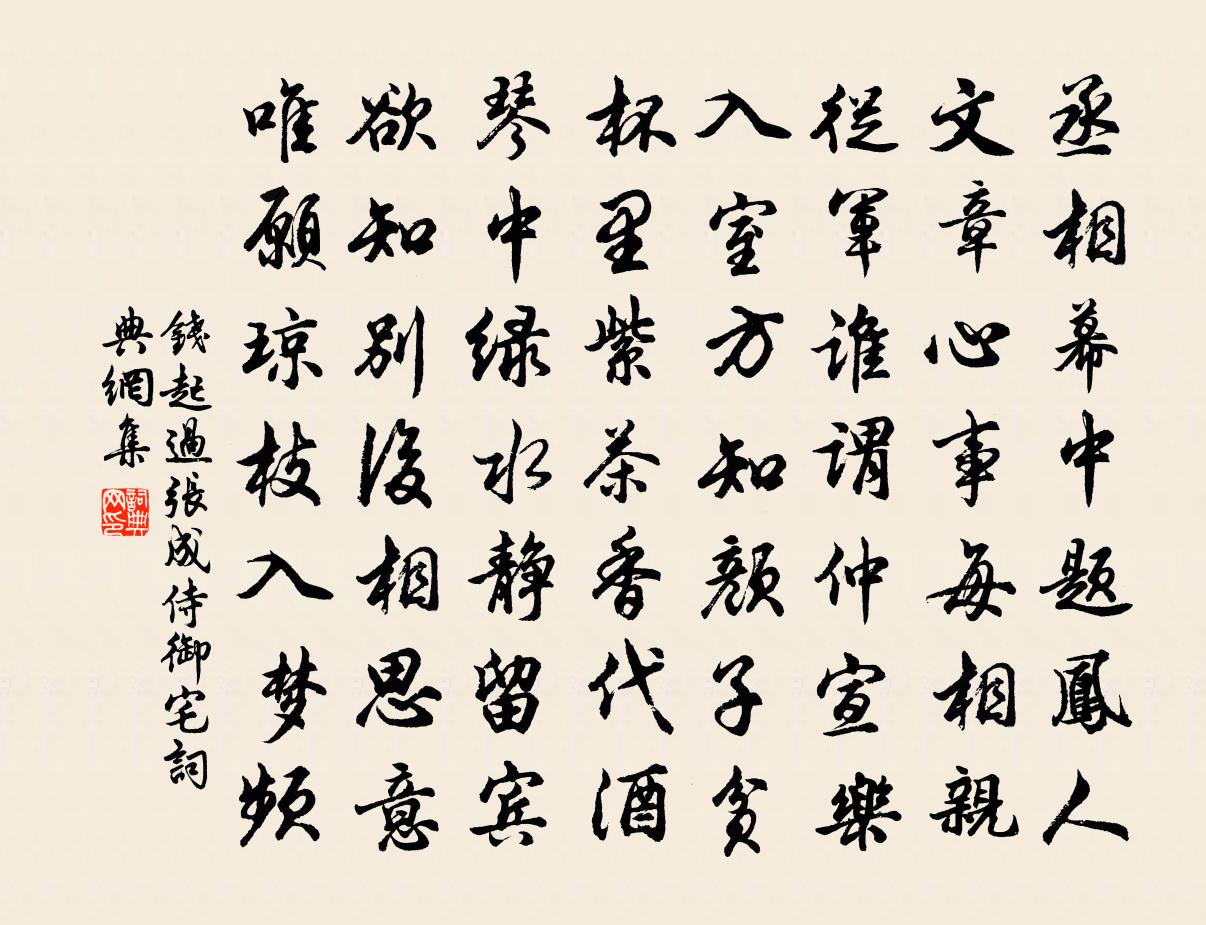 丞相幕中題鳳人
文章心事每相親
從軍誰謂仲宣樂
入室方知顏子貧
杯里紫茶香代酒
琴中綠水靜留賓
欲知別後相思意
唯願琼枝入梦頻
錢起過張成侍御宅詞
典網集
詞典网印